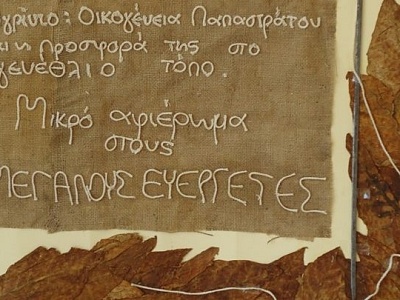 Αγρίνιο: Οικογένεια Παπαστράτου
προσφορά της στο
γενέθλιο τόπο.
Μικρό αφιέρωμα
στους
ΜΕΓΑΛΟΥΣ ΕΥΕΡΓΕΤΕΣ